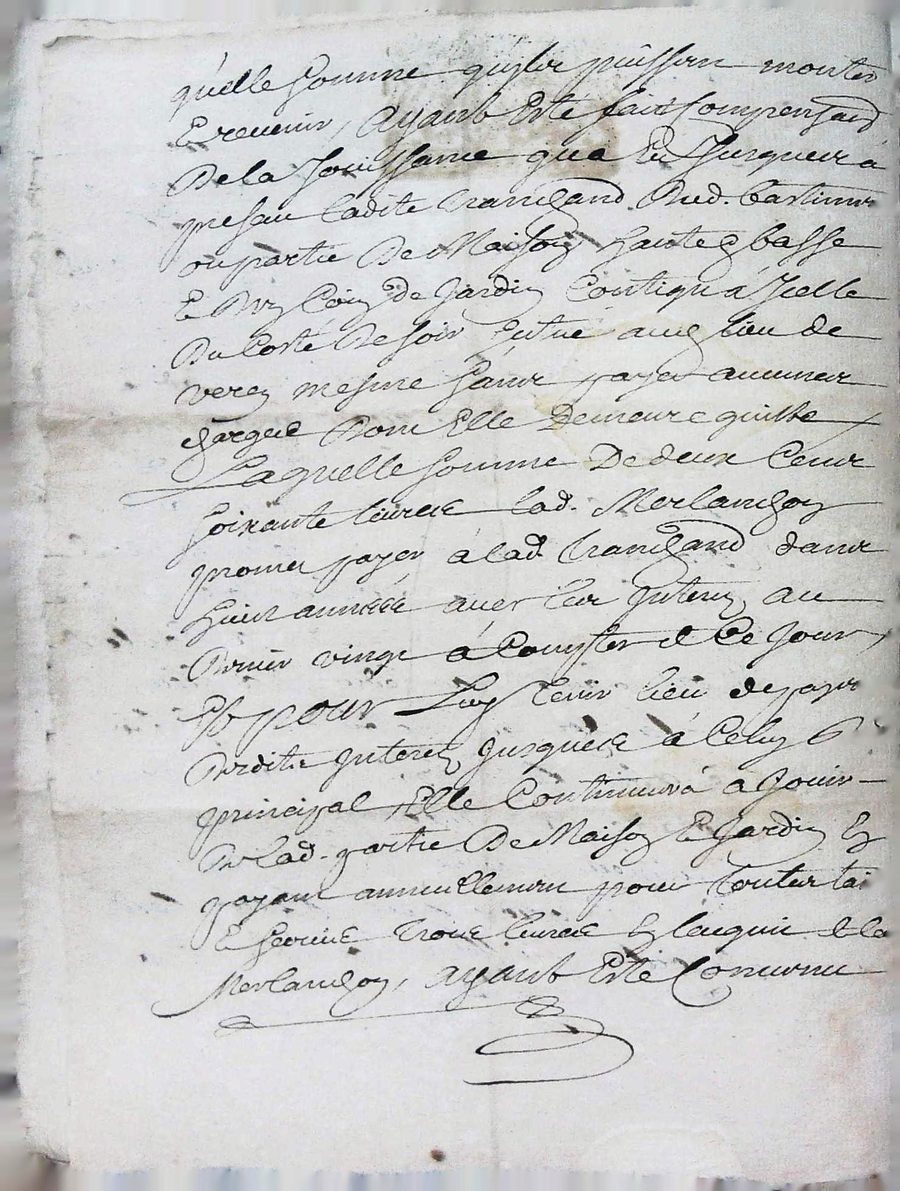 quelle somme quils puissen monter
E revenir, ayant Esté fait Compensaōn
De la Jouissance qua Eu Jusqueà
presan ladite Dud. bastimen
ou partie De Maison haute & basse
E Dun Coin de Jardin Contigu a Icelle
Du Costé De soir
mesme sans payer aucunes
charges Dont Elle Demeure quitte
Laquelle somme De deux Cens
soixante livres lad. Merlanchon
promet payer à lad. dans
huit années avec leur Interez au
Denier vingt à Compter de Ce Jour
Et pour Luy tenir lieu de payer
Desdits Interez Jusques à Celuy d
principal Elle Continuera a Jouir
De lad. partie De Maison E Jardin En
payant annuellement pour toutes tai
E trois livres En laquit de la
Merlanchon, ayant Esté Convenu